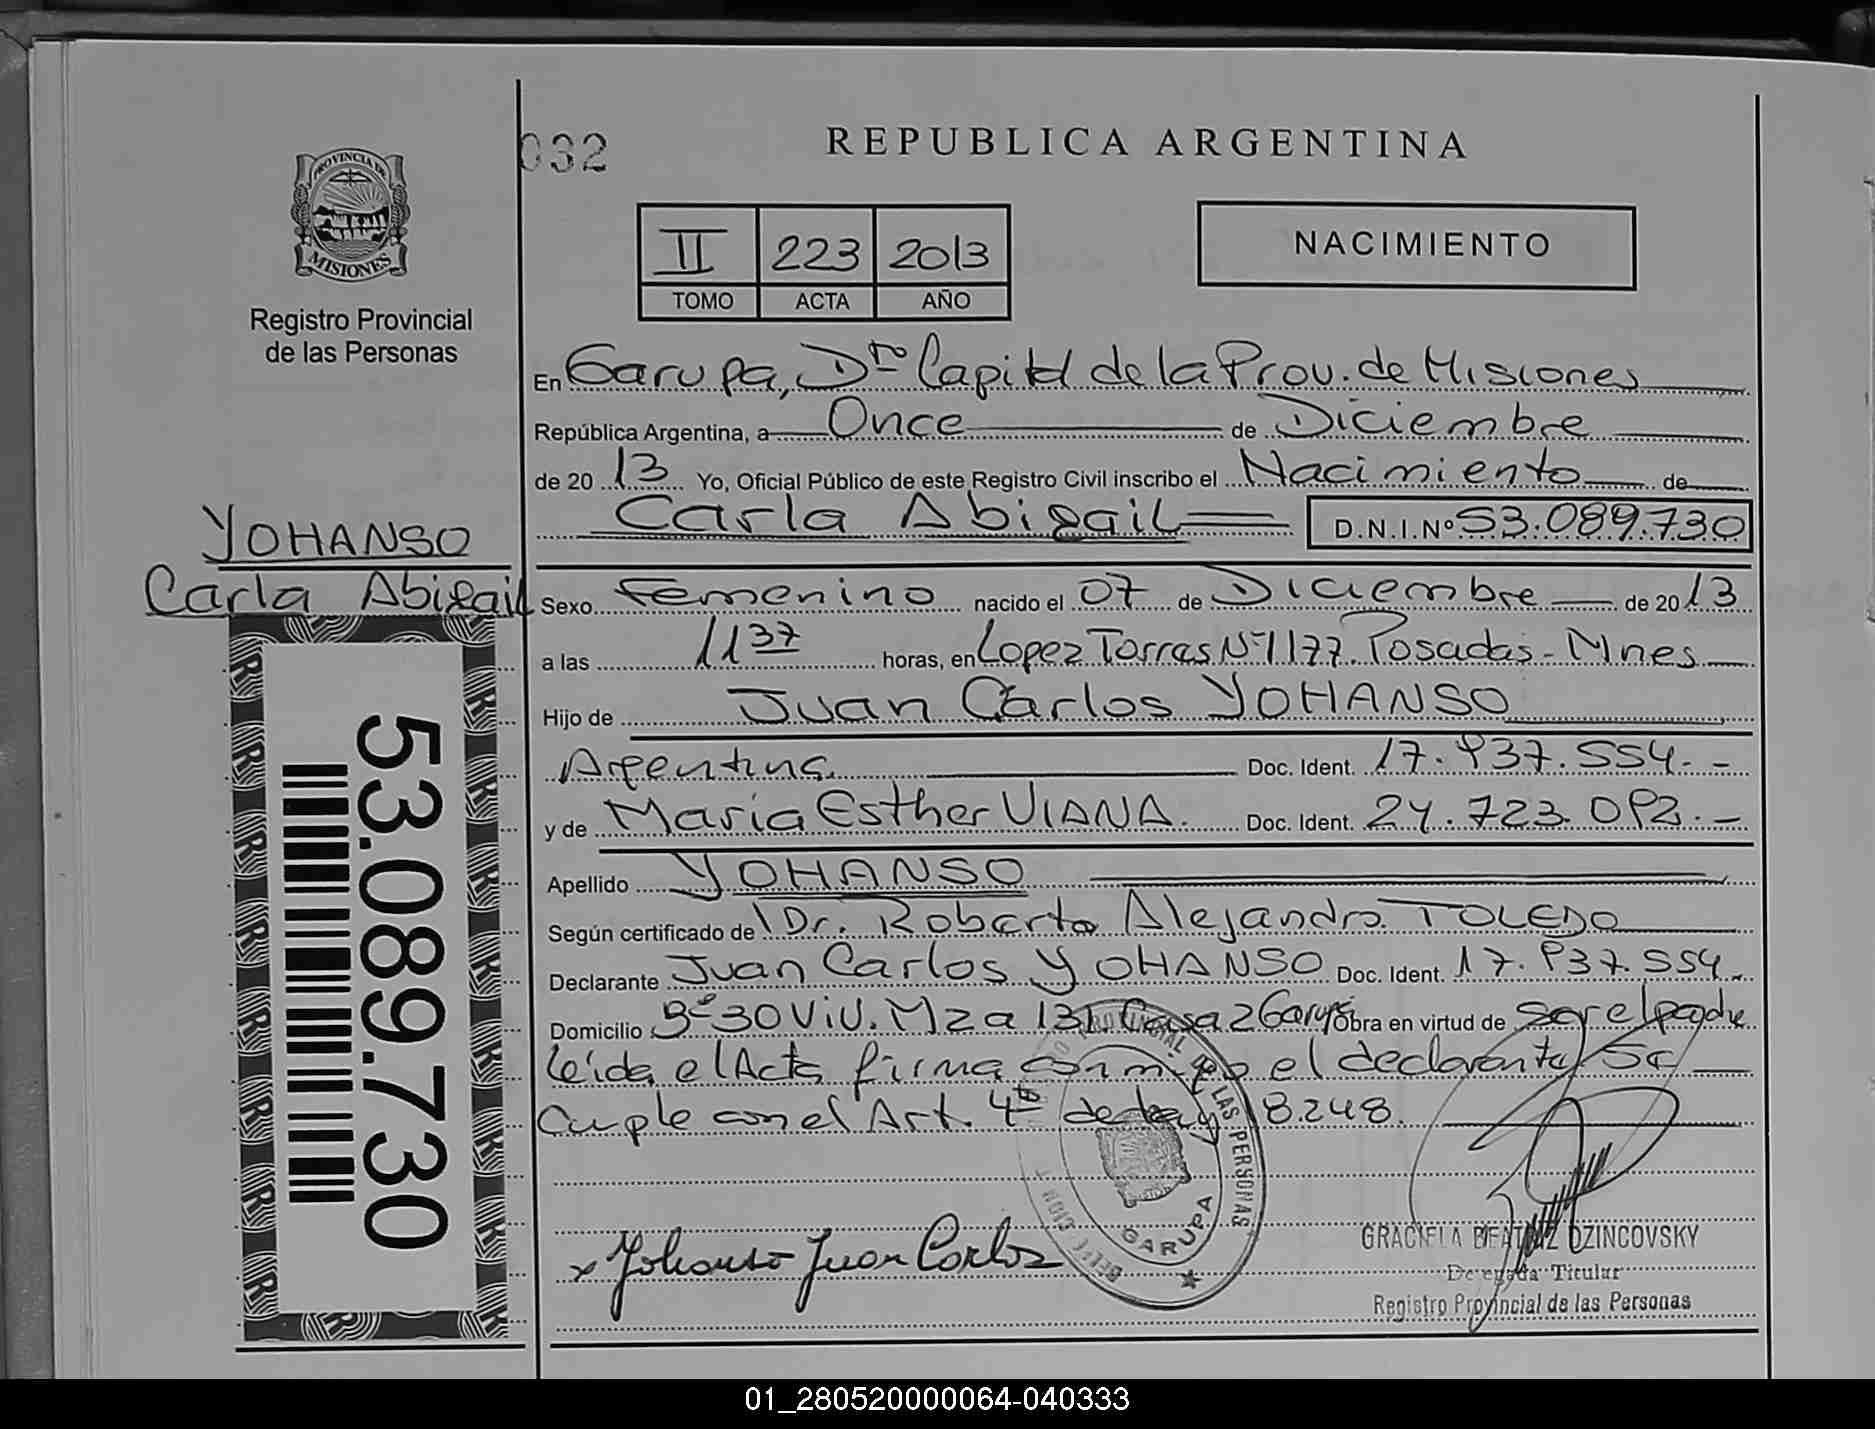 032
REPUBLICA ARGENTINA
PROVINCIA DE
MISIONES
Registro Provincial
de las Personas
II 223 2013
TOMO ACTA AÑO
NACIMIENTO
En Garupa, Dto Capital de la Prov. de Misiones
República Argentina, a Once de Diciembre
de 2013 Yo, Oficial Público de este Registro Civil inscribo el Nacimiento de
Carla Abigail D.N.I.Nº 53.089.730
YOHANSO
Carla Abigail
53.089.730
Sexo Femenino nacido el 07 de Diciembre de 2013
a las 11 37 horas, en Lopez Torres Nº 1177. Posadas - Mnes
Hijo de Juan Carlos YOHANSO
Argentina Doc. Ident. 17.937.554.-
y de Maria Esther VIANA. Doc. Ident. 24.723.092.-
Apellido YOHANSO
Según certificado de Dr. Roberto Alejandro TOLEDO
Declarante Juan Carlos YOHANSO Doc. Ident. 17.937.554.
Domicilio Bº 30 Viv. Mza 131 Casa 2 Garupá Obra en virtud de ser el padre
leida el Acta firma conmigo el declarante Se
cumple con el Art. 4to de Ley 18.248.
PROVINCIAL DE LAS PERSONAS
GARUPA
x Yohanso Juan Carlos
GRACIELA BEATRIZ DZINCOVSKY
Delegada Titular
Registro Provincial de las Personas
01_280520000064-040333